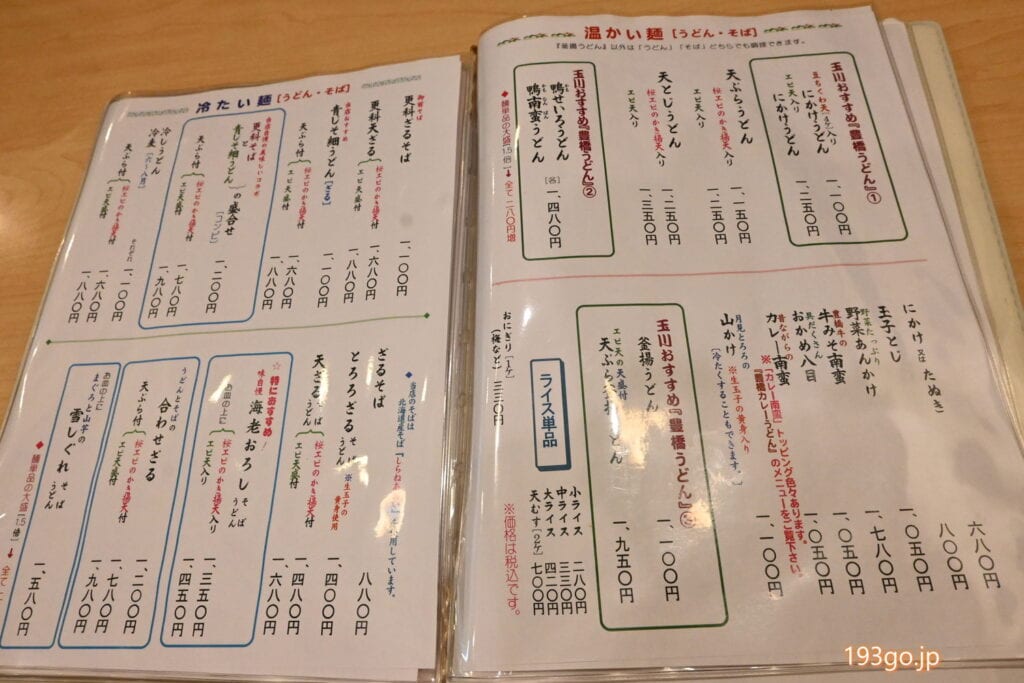 温かい麺［うどん・そば］
『釜揚うどん』以外は「うどん」「そば」どちらでも調理できます。
玉川おすすめ『豊橋うどん』①
豆ちくわ天入り にかけうどん 一、一〇〇円
エビ天入り にかけうどん 一、二五〇円
天ぷらうどん
桜エビのかき揚天入り 一、一五〇円
エビ天入り 一、二五〇円
天とじうどん
桜エビのかき揚天入り 一、二五〇円
エビ天入り 一、三五〇円
玉川おすすめ『豊橋うどん』②
鴨せいろうどん
鴨南蛮うどん
［各］一、四八〇円
◆麺単品の大盛(1.5倍)→全て二八〇円増
にかけ 又は たぬき 六八〇円
玉子とじ 八〇〇円
野菜たっぷり 野菜あんかけ 一、〇五〇円
豊橋牛の 牛みそ南蛮 一、七八〇円
具だくさん おかめ八目 一、〇五〇円
昔ながらの カレー南蛮 一、〇五〇円
※「カレー南蛮」トッピング色々あります。
『豊橋カレーうどん』のメニューをご覧下さい。
月見とろろの 山かけ ※生玉子の黄身入り 一、一〇〇円
［冷たくすることもできます。］
玉川おすすめ『豊橋うどん』③
釜揚うどん 一、一〇〇円
エビ天の天盛付
天ぷら釜揚うどん 一、九五〇円
ライス単品
小ライス 二八〇円
中ライス 三三〇円
大ライス 四二〇円
天むす［2ケ］ 七〇〇円
おにぎり［1ケ］
(梅など) 三三〇円
※価格は税込です。
冷たい麺［うどん・そば］
御前そば
更科ざるそば 一、一〇〇円
更科天ざる
桜エビのかき揚天付 一、六八〇円
エビ天盛付 一、八八〇円
当店おすすめ
青じそ細うどん［ざる］ 一、一〇〇円
天ぷら付
桜エビのかき揚天付 一、六八〇円
エビ天盛付 一、八八〇円
当店自慢の美味しいコラボ
更科そば と 青じそ細うどん の盛合せ［コンビ］ 一、二〇〇円
天ぷら付
桜エビのかき揚天付 一、七八〇円
エビ天盛付 一、九八〇円
冷しうどん
冷麦［六〜八月］
それぞれ 一、一〇〇円
天ぷら付
桜エビのかき揚天付 一、六八〇円
エビ天盛付 一、八八〇円
◆当店のそばは
北海道産そば『しらねあおい』を使用しています。
ざるそば 八〇〇円
とろろざる そば うどん ※生玉子の黄身使用 一、〇〇〇円
天ざる そば うどん
桜エビのかき揚天付 一、四八〇円
エビ天盛付 一、六八〇円
☆特におすすめ!
味自慢 海老おろし そば うどん
お皿の上に
桜エビのかき揚天入り 一、三五〇円
エビ天入り 一、四五〇円
うどんとそばの
合わせざる 一、二〇〇円
天ぷら付
桜エビのかき揚天付 一、七八〇円
エビ天盛付 一、九八〇円
お皿の上に
まぐろと山芋の
雪しぐれ そば うどん 一、五八〇円
◆麺単品の大盛(1.5倍)→全て
193go.jp